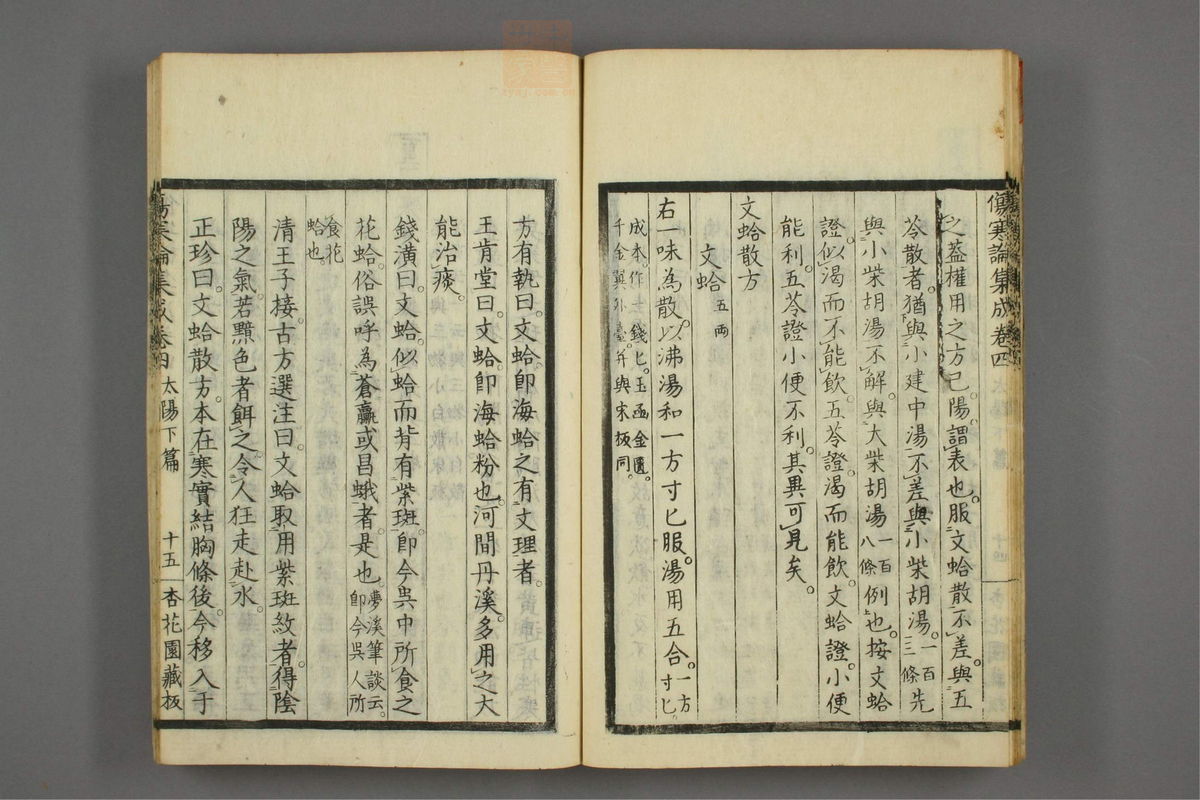 傷寒論集成卷四
之蓋權用之方已。陽。謂表也。服文蛤散不差。與五
苓散者。猶與小建中湯不差。與小柴胡湯。一百三條先
與小柴胡湯不解。與大柴胡湯一百八條例也。按文蛤
證。似渴而不能飲。五苓證。渴而能飲。文蛤證小便
能利。五苓證小便不利。其異可見矣。
文蛤散方
文蛤五兩
右一味為散。以沸湯和一方寸匕服。湯用五合。一方寸匕。
成本。作一錢匕。玉函金匱。
千金翼外臺。并與宋板同。
方有執曰。文蛤。即海蛤之有文理者。
王肯堂曰。文蛤。即海蛤粉也。河間丹溪。多用之大
能治痰。
錢潢曰。文蛤。似蛤而背有紫斑。即今吳中所食之
花蛤。俗誤呼為蒼蠃或昌蛾者。是也。夢溪筆談云。即今吳人所
食花
蛤也
清王子接。古方選注曰。文蛤取用紫斑紋者。得陰
陽之氣。若黯色者餌之。令人狂走赴水。
正珍曰。文蛤散方。本在寒實結胸條後。今移入于
傷寒論集成卷四 太陽下篇 十五 杏花園藏板